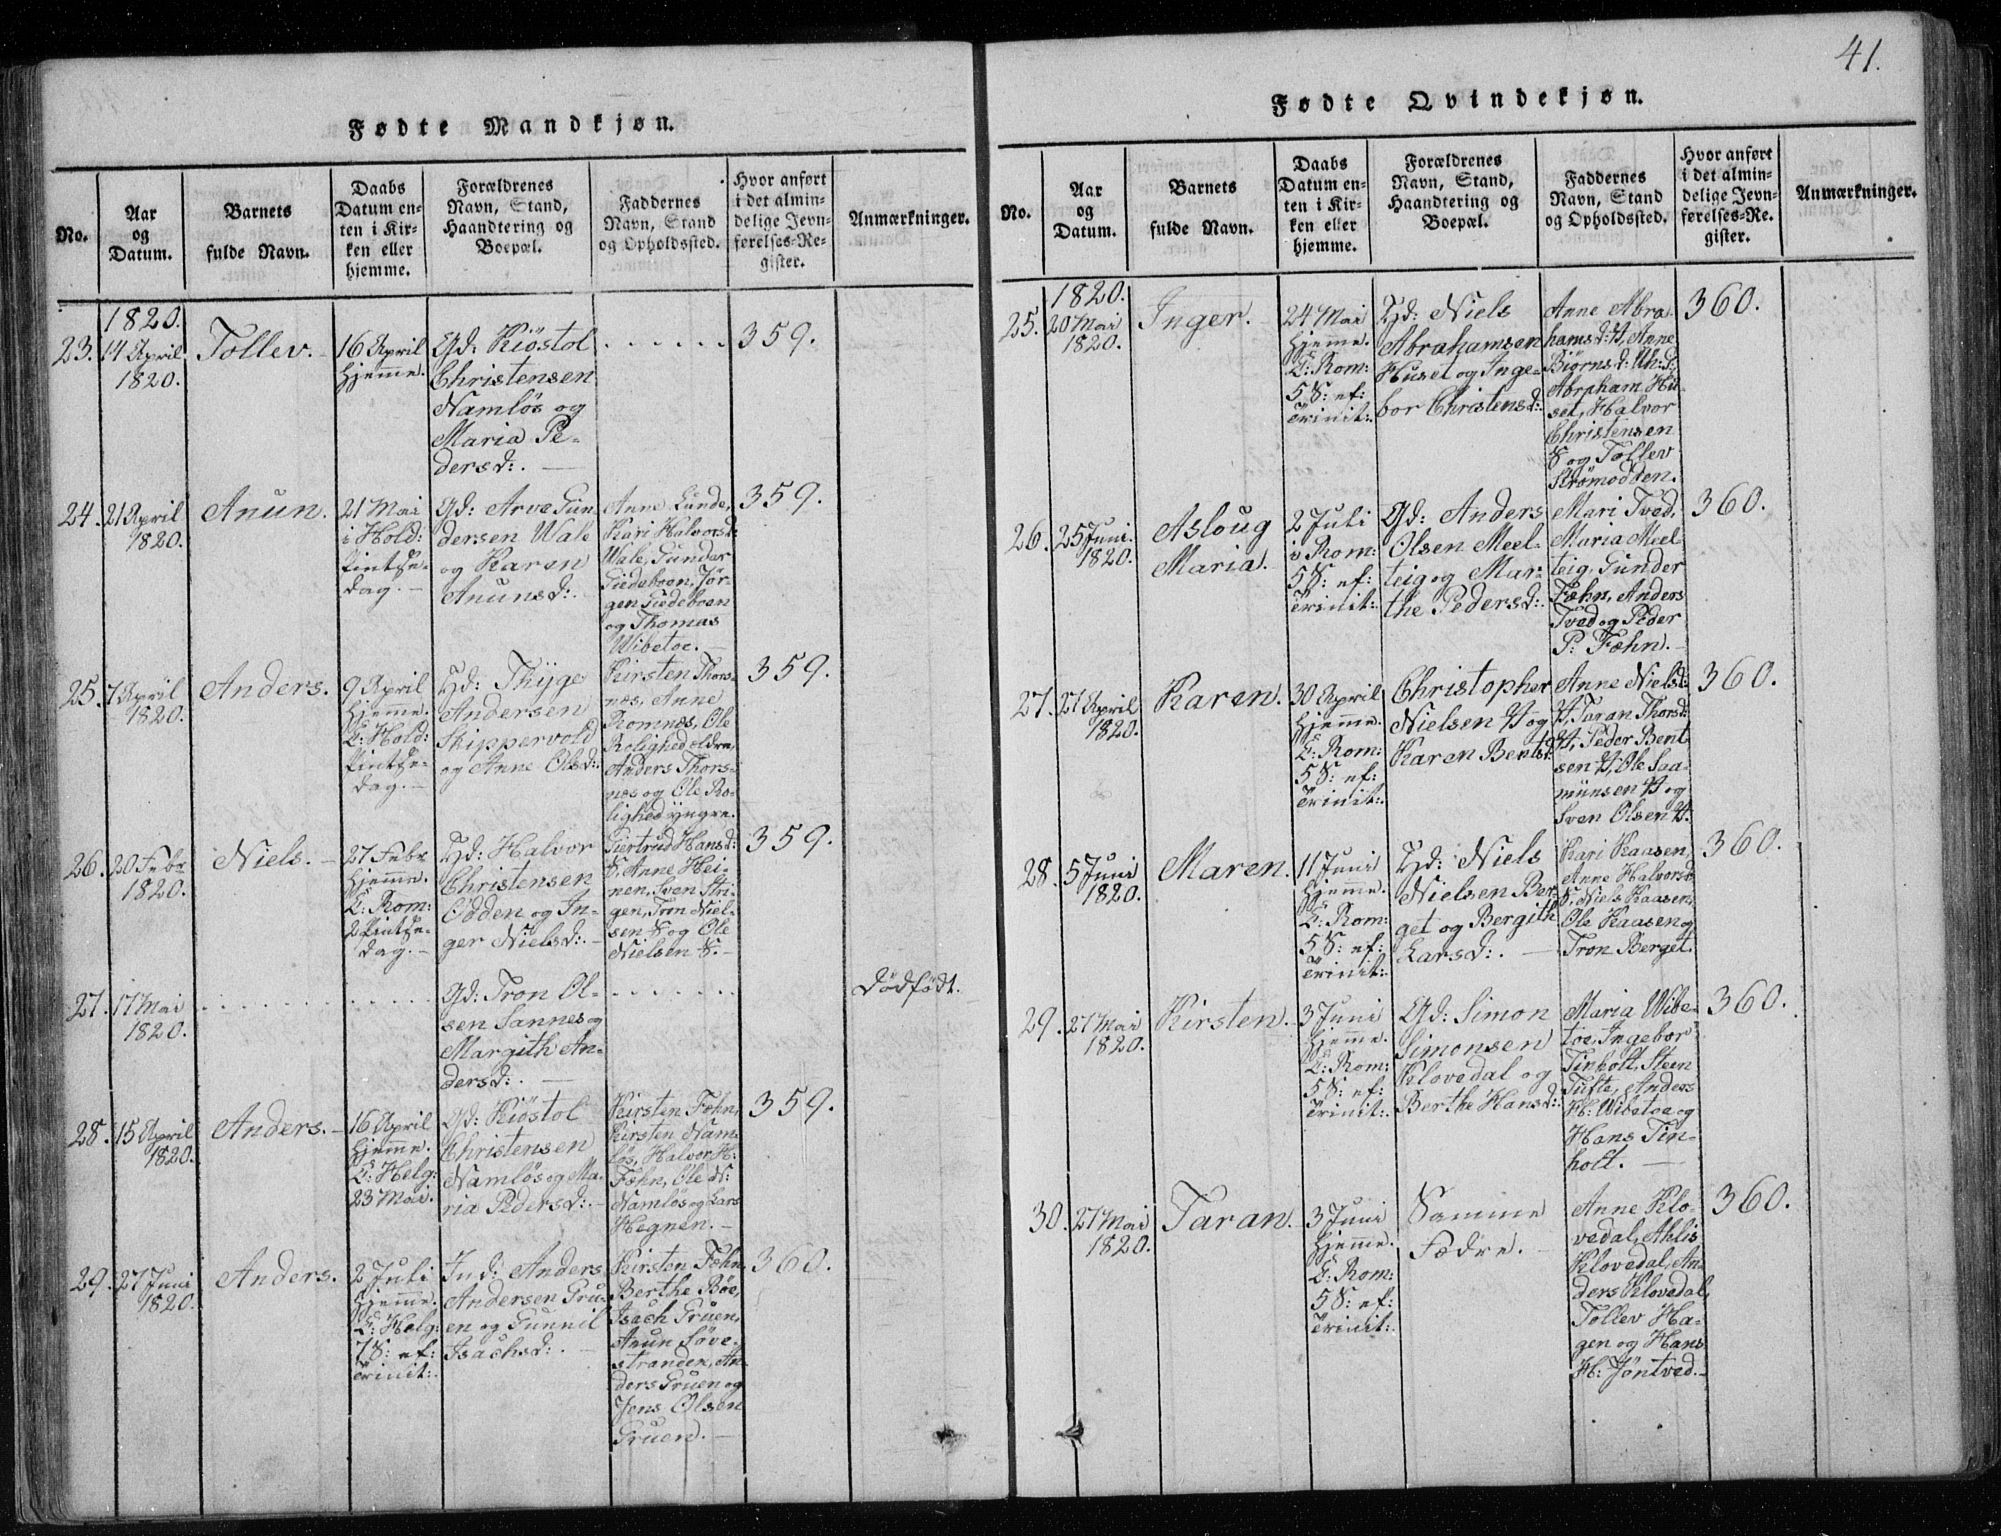 41.
Fødte Mandkjøn.
No.
Aar
og
Datum.
Barnets
fulde Navn.
Daabs
Datum en-
ten i Kir-
ken eller
hjemme.
Forældrenes
Navn, Stand,
Haandtering og
Boepæl.
Faddernes
Navn, Stand
og Opholdssted.
Hvor anført
i det almin-
delige Jevn-
førelses-Re-
gister.
Anmærkninger.
1820.
23.
14 April
1820.
Tollev.
16 April
hjemme.
Gd: Kiöstol
Christensen
Namlös og
Maria Pe-
dersd:.
359.
24.
21 April
1820.
Anun.
21 Mai
i Hold:
Pintse-
dag.
Gd: Arve Gun
dersen Wale
og Karen
Anunsd:.
Anne Lunde,
Kari Halvorsd:
Wale, Gundar
Giedeboen, Jør-
gen Giedeboen
og Thomas
Wibetoe.
359.
25.
7 April
1820.
Anders.
9 April
hjemme.
E: Hold:
Pintse-
dag.
Hd: Thyge
Andersen
Skippervold
og Anne Olsd:.
Kirsten Thors-
næs, Anne
Romnæs, Ole
Rolighed ældre,
Anders Thors-
næs og Ole Ro-
lighed yngre.
359.
26.
20 Febr
1820.
Niels.
27 Febr
hjemme.
E: Rom:
2 Pintse-
dag.
Hd: Halvor
Christensen
Odden og In-
ger Nielsd:.
Giertrud Hansd:
S, Anne Hei-
nen, Sven Stri-
gen, Tron Niel-
sen S og Ole
Nielsen S.
359.
27.
17 Mai
1820.
Gd: Tron Ol-
sen Sannes og
Margith An-
dersd:.
Dödfödt.
28.
15 April
1820.
Anders.
16 April
hjemme.
E: Helg:
23 Mai.
Gd: Kiöstol
Christensen
Namlös og Ma-
ria Pedersd:.
Kirsten Fæhn,
Kirsten Nam-
lös, Halvor H:
Fæhn, Ole N:
Namlös og Lars
Hegnen.
359.
29.
27 Juni
1820.
Anders.
2 Juli
hjemme.
E: Helg:
7 S: ef:
Trinit:.
Ind: Anders
Andersen Gru-
en og Gunnil
Isachsd:.
Kirsten Fæhn,
Berthe Böe,
Isach Gruen,
Anun Löve-
stranden, An-
ders Gruen og
Jens Olsen
Gruen.
360.
Fødte Qvindekjøn.
No.
Aar
og
Datum.
Barnets
fulde Navn.
Daabs
Datum en-
ten i Kir-
ken eller
hjemme.
Forældrenes
Navn, Stand,
Haandtering og
Boepæl.
Faddernes
Navn, Stand
og Opholdssted.
Hvor anført
i det almin-
delige Jevn-
førelses-Re-
gister.
Anmærkninger.
1820.
25.
20 Mai
1820.
Inger.
24 Mai
hjemme.
E: Rom:
5 S: ef:
Trinit:.
Hd: Niels
Abrahamsen
Huset og Inge-
bor Christensd:.
Anne Abra
hamsd: H, Anne
Biørnsd:
Abraham Hu-
set, Halvor
Christensen
S og Tollev
Strömodden.
360.
26.
25 Juni
1820.
Asloug
Maria.
2 Juli
i Rom:
5 S: ef:
Trinit:.
Gd: Anders
Olsen Meel-
teig og Mar-
the Pedersd:.
Mari Tved,
Maria Meel-
teig, Gunder
Fæhn, Anders
Tved og Peder
P: Fæhn.
360.
27.
27 April
1820.
Karen.
30 April
hjemme.
E: Rom:
5 S: ef:
Trinit:.
Christopher
Nielsen H og
Karen Bentsd:
Anne Nielsd:
H, Taran Thorsd:
H, Peder Bent
sen H, Ole Saa-
münsen H og
Sven Olsen H.
360.
28.
5 Juni
1820.
Maren.
11 Juni
hjemme.
E: Rom:
5 S: ef:
Trinit:.
Hd: Niels
Nielsen Ber-
get og Bergith
Larsd:.
Kari Kaasen,
Anne Halvorsd:
S, Niels Kaasen,
Ole Kaasen og
Tron Berget.
360.
29.
27 Mai
1820.
Kirsten.
3 Juni
hjemme.
E: Rom:
5 S: ef:
Trinit:.
Gd: Simon
Simonsen
Klovedal og
Berthe Hansd:.
Maria Wibe-
toe, Ingebor
Tinholt, Steen
Tufte, Anders
H: Wibetoe og
Hans Tin-
holt.
360.
30.
27 Mai
1820.
Taran.
3 Juni
hjemme.
E: Rom:
5 S: ef:
Trinit:.
Samme
Fædre.
Anne Klo-
vedal, Ahlis
Klovedal, An-
ders Klovedal,
Tollev Ha-
gen og Hans
H: Jøntved.
360.